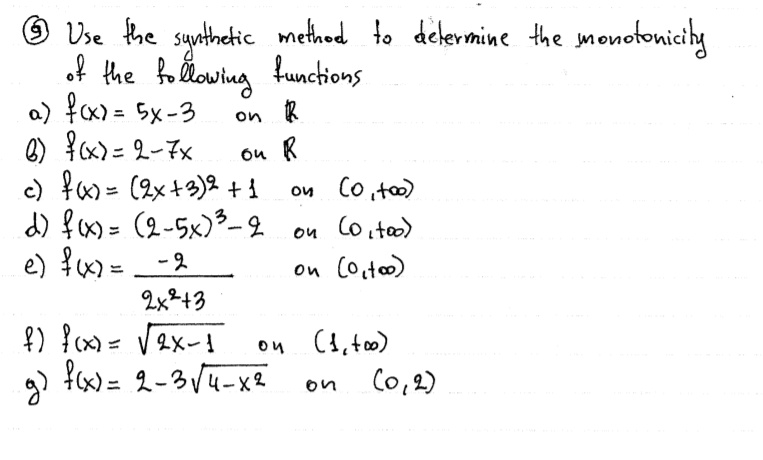 ⑨ Use the synthetic method to determine the monotonicity
of the following functions
a) f(x) = 5x-3 on ℝ
b) f(x) = 2-7x on ℝ
c) f(x) = (2x+3)² + 1 on (0,+∞)
d) f(x) = (2-5x)³-2 on (0,+∞)
e) f(x) = -2/(2x²+3) on (0,+∞)
f) f(x) = √(2x-1) on (1,+∞)
g) f(x) = 2-3√(4-x²) on (0,2)